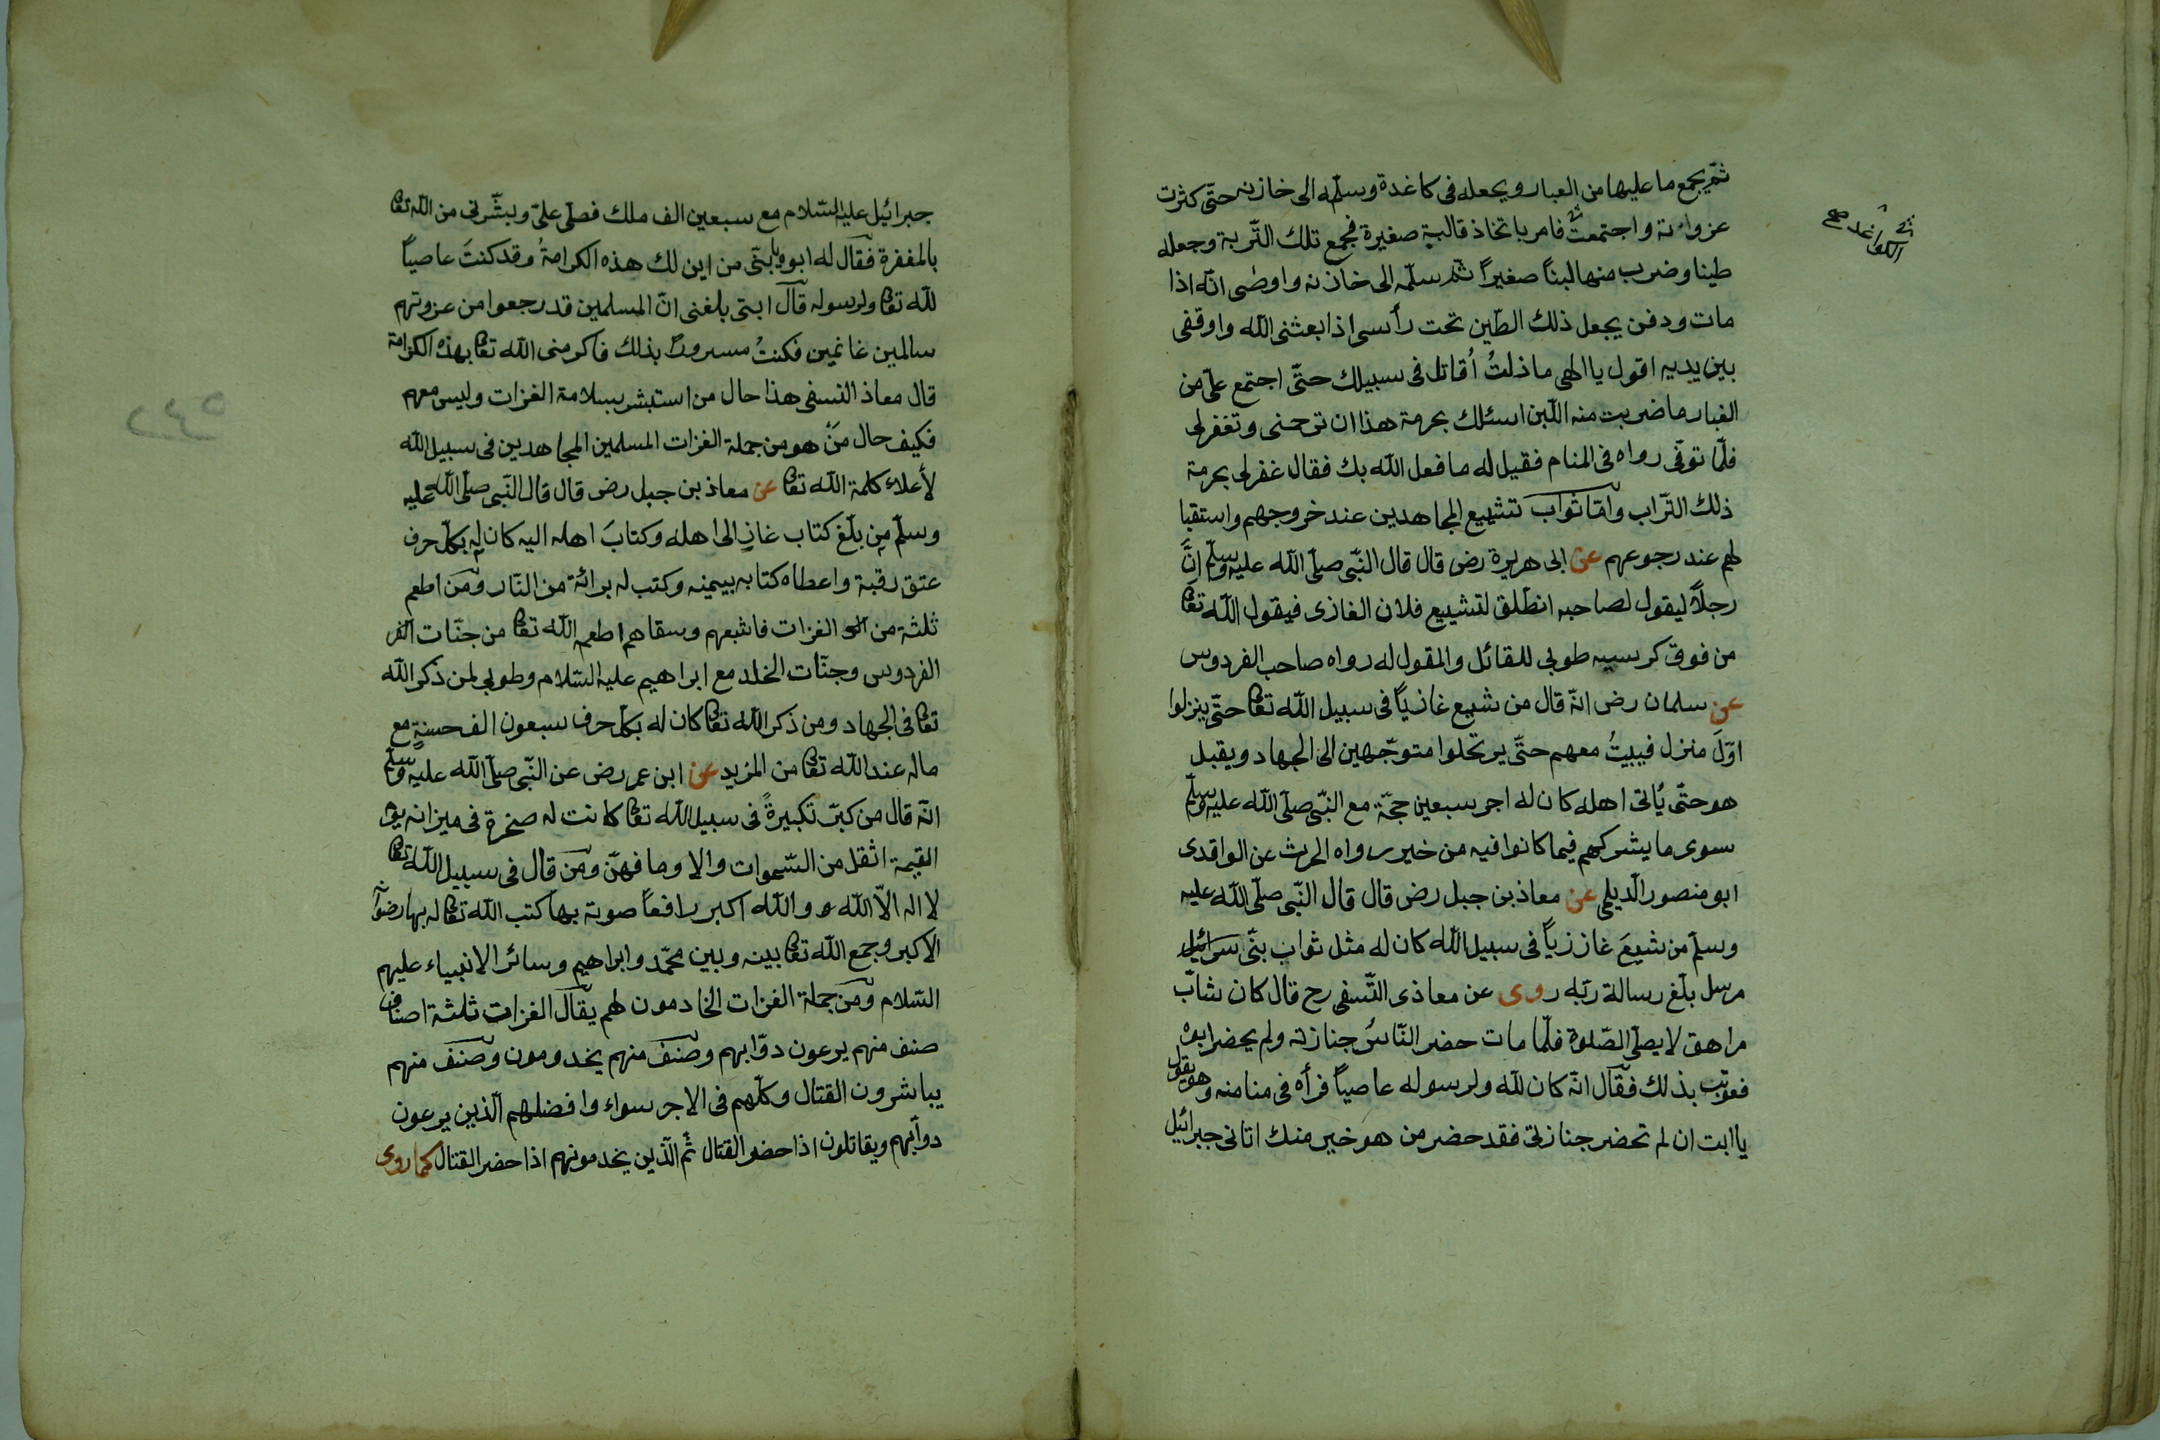 ثم يجمع ما عليها من الغبار ويجعله فى كاغدة وسلمه الى خازنه حتى كثرت
الكواغد صح
غزواته واجتمعت فامر باتخاذ قالبة صغيرة فجمع تلك التربة وجعله
طينا وضرب منها لبناً صغيراً ثم سلمه الى خازنه واوصى انه اذا
مات ودفن يجعل ذلك الطين تحت رأسى اذا بعثنى الله واوقفى
بين يديه اقول يا الهى ما ذلتُ اُقاتل فى سبيلك حتّى اجتمع علىّ من
الغبار ما ضربت منه اللّبن اسئلك بحرمة هذا ان ترحمنى وتغفر لى
فلمّا توفّى رواه فى المنام فقيل له ما فعل الله بك فقال غفر لى بحرمة
ذلك التّراب وامّا ثواب تشييع المجاهدين عند خروجهم واستقبا
لهم عند رجوعهم عن ابى هريرة رض قال قال النّبى صلّى الله عليه وسلّم انَّ
رجلاً ليقول لصاحبه انطلق لتشييع فلان الغازى فيقول الله تعا
من فوق كرسيه طوبى للقائل والمقول له رواه صاحب الفردوس
عن سلمان رض انّه قال من شيع غازياً فى سبيل الله تعا حتّى ينزلوا
اوّل منزل فيبيتُ معهم حتّى يرتحلوا متوجّهين الى الجهاد ويقبل
هو حتّى يُاتى اهله كان له اجر سبعين حجّة مع النّبى صلّى الله عليه وسلّم
سوى ما يشركهم فيما كانوا فيه من خير رواه الحرث عن الواقدى
ابو منصور الدّيلمى عن معاذ بن جبل رض قال قال النّبى صلّى الله عليه
وسلّم من شيعَ غاز زياً فى سبيل الله كان له مثل ثواب بنّى سرائيل
مرسل بلّغ رسالة ربّه روى عن معاذى النّسفى رح قال كان شابّ
مراهق لا يصلّى الصّلوة فلمّا مات حضر النّاسُ جنازته ولم يحضر ابوه
فعوتب بذلك فقال انّه كان لله ولرسوله عاصياً فرأه فى منامنه وهو يقول
يا ابت ان لم تحضر جنازتى فقد حضر من هو خير منك اتانى جبرائيل
جبرائيل عليه السّلام مع سبعين الف ملك فصلّى علىّ وبشّرنى من الله تعا
بالمغفرة فقال له ابوه يا بنّى من اين لك هذه الكرامةُ وقد كنتَ عاصياً
لله تعا ولرسوله قال ابتى بلغنى انّ المسلمين قد رجعوا من غزوتهم
سالمين غانمين فكنتُ مسروراً بذلك فاكرمنى الله تعا بهذه الكرامة
قال معاذ النسفى هذا حال من استبشر بسلامة الغزات وليس معهم
فكيف حال مَنْ هو من جملة الغزات المسلمين المجاهدين فى سبيل الله
لأعلاء كلمة الله تعا عن معاذ بن جبل رض قال قال النّبى صلّى الله عليه
وسلّم من بلّغ كتاب غازٍ الى اهله وكتابَ اهله اليه كان له بكلّ حرف
عتق رقبة واعطاه كتابه بيمينه وكتب له برائة من النّار ومن اطعم
ثلثة من الغزات فاشبعهم وسقاهم اطعمه الله تعا من جنّات الفر
الفردوس وجنّات الخلد مع ابراهيم عليه السّلام وطوبى لمن ذكر الله
تعا فى الجهاد ومن ذكر الله تعا كان له بكلّ حرف سبعون الف حسنةٍ مع
ماله عند الله تعا من المزيد عن ابن عمر رض عن النّبى صلّى الله عليه وسلّم
انّه قال من كبّر تكبيرةً فى سبيل الله تعا كانت له صخرة فى ميزانه يوم
القيمة اثقل من السّموات والا وما فهنّ ومن قال فى سبيل الله تعا
لا اله الاّ الله و والله اكبر رافعاً صوته بها كتب الله تعا له بها رضوانه
الاكبر وجمع الله تعا بينه وبين محمّد وابراهيم وسائر الانبياء عليهم
السّلام ومن جملة الغزات الخادمون لهم يقال الغزات ثلثة اصناف
صنف منهم يرعون دوّابهم وصنف منهم يخدومون وصنف منهم
يباشرون القتال وكلّهم فى الاجر سواء وافضلهم الّذين يرعون
دوابّهم ويقاتلون اذا حضر القتال ثم الّذين يخدمونهم اذا حضر القتال كما روى